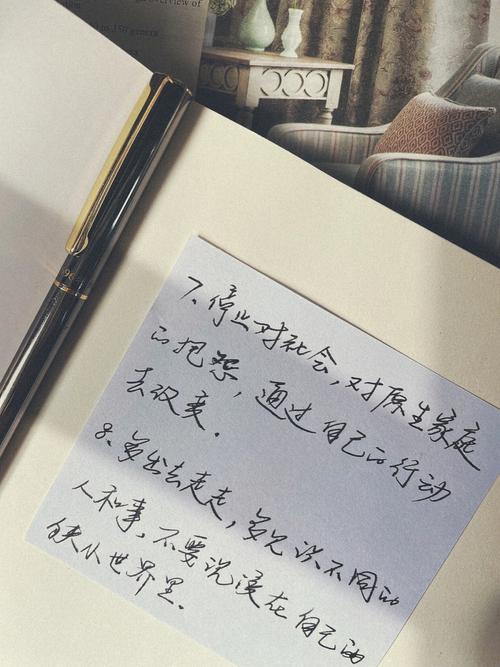 overview of
to 150 genera
96
7. 停止对社会,对原生家庭
的抱怨,通过自己的行动
去改变.
8. 多出去走走,多见识不同的
人和事,不要沉浸在自己的
狭小世界里.